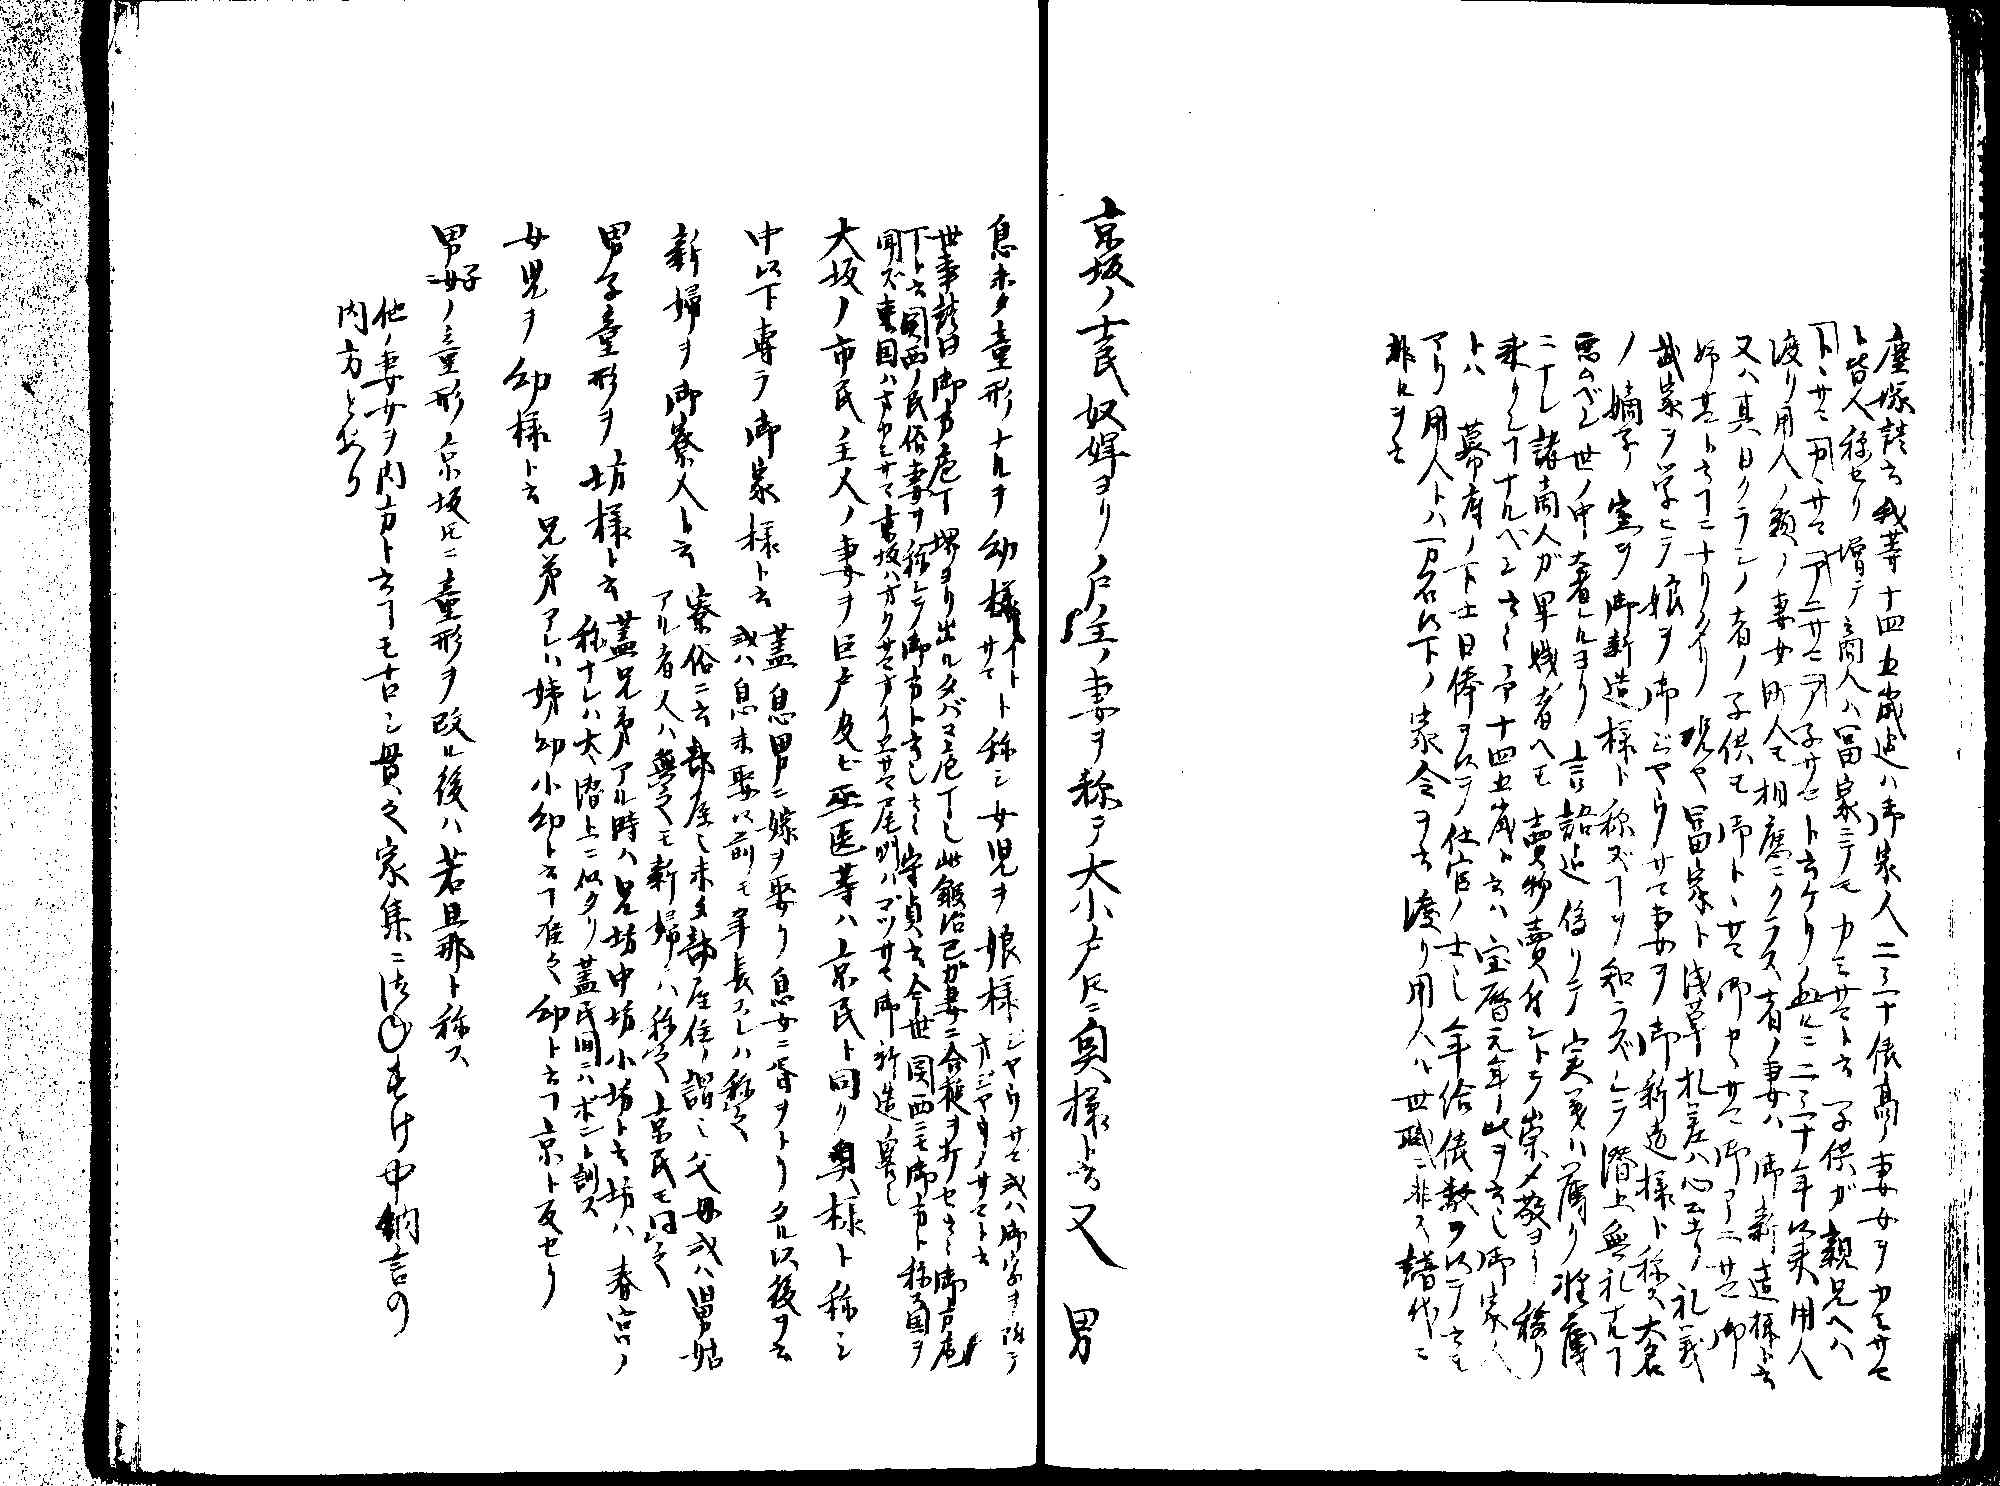 塵塚談云我等十四五歳迄ハ御家人二三十俵高ノ妻女ヲカミサマ
ト皆人称セリ増テ商人ハ冨家ニテモカミサマト云子供ガ親兄ヘハ
トヽサマカヽサマアニサマアネサマト云ケリ然ルニ二三十年以来用人
渡リ用人ノ類ノ妻女町人モ相應ニクラス者ノ妻ハ御新造様ト云
又ハ其日クラシノ者ノ子供モ御トヽサマ御カヽサマ御アニサマ御
姉サマト云コトニナリタリ現や冨家ト浅草札差ハ心エキリ礼義
武家ヲ学ヒテ娘ヲ御ジヤウサマ妻ヲ御新造様ト称ス大名
ノ嫡子ノ室ヲ御新造様ト称ズコトヲ知ラズシテ潜上無礼ナルコト
悪ムベシ世ノ中奢ルヨリ言語迄偽リテ実義ハ薄リ軽薄
ニナレ諸商人ガ卑賎ノ者ヘモ賣物賣付ントテ崇メ敬ヨリ移リ
来リシコトナルベシ云々予十四五歳ト云ハ宝暦元年ノ此ヲ云シ御家人
トハ 幕府ノ下士日俸ヲ以テ仕官ノ士シ年給俵数ヲ以テ云モ
アリ用人トハ一万石以下ノ家令ヲ云渡リ用人ハ世職ニ非ス譜代ニ
非ルヲ云
京坂ノ士民奴婢ヨリ戸主ノ妻ヲ称テ大小戸トモニ奥様ト云又男
息未タ童形ナルヲ幼様 イトサマ ト称シ女児ヲ娘様 ジヤウサマ或ハ御字ヲ附テ
オジヤウサマト云
世事談曰御方庖丁堺ヨリ出ルタバコ庖丁シ此鍛冶己ガ妻ニ合槌ヲ打セ云々御方庖
丁ト云関西ノ民俗妻ヲ称シテ御方ト云シ云々守貞云今世関西ニモ御方ト称ヲ国ヲ
聞ズ東国ハオカミサマ京坂ハオクサマオイエサマ尾州ハゴツサマ御新造ノ異シ
大坂ノ市民ノ主人ノ妻ヲ巨戸及ビ巫医等ハ京民ト同ク奥様ト称シ
中以下専ラ御家様ト云 蓋息男ニ嫁ヲ娶リ息女ニ婿ヲトリタル以後ヲ云
或ハ息未娶以前モ年長スレハ称之
新婦ヲ御寮人ト云 寮俗ニ云部屋シ未タ部屋住ノ謂シ父母或ハ舅姑
アル者又ハ無之モ新婦ハ称之京民モ同之
男子童形ヲ坊様ト云 蓋兄弟アル時ハ兄坊中坊小坊ト云坊ハ春宮ノ
称ナレハ大ニ潜上ニ似タリ蓋民間ニハボント訓ス
女児ヲ幼様ト云 兄弟アレハ姉幼小幼ト云コト准之幼ト云コト京ト反セリ
男女子ノ童形ハ京坂トモニ童形ヲ改ル後ハ若旦那ト称ス
他ノ妻女ヲ内方ト云コトモ古シ貫之家集ニかねすけ中納言の
内方とあり